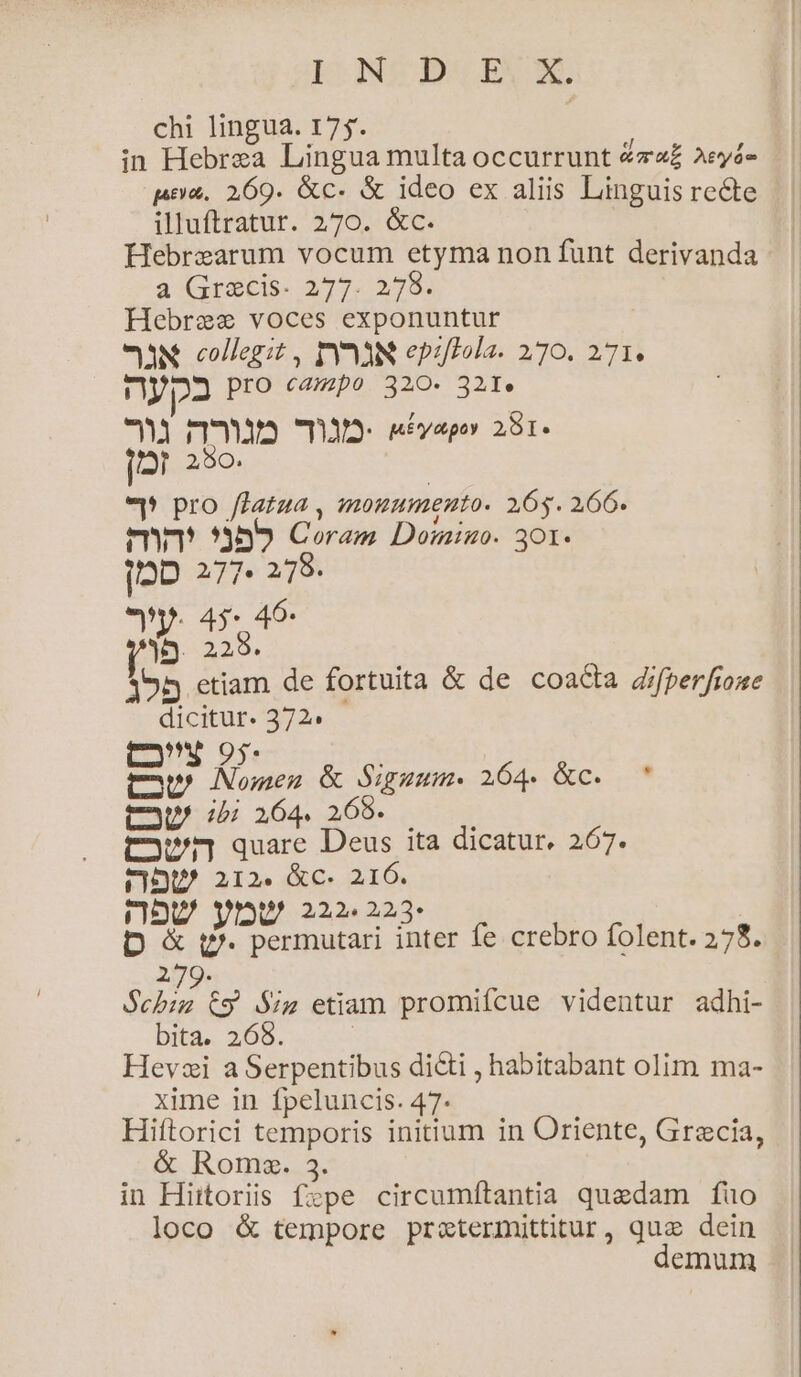 I N D E X.
chi lingua. 175.
in Hebræa Lingua multa occurrunt ἅπαξ λεγό-
μενα. 269. &c. & ideo ex aliis Linguis recte
illuſtratur. 270. &c.
Hebræarum vocum etyma non ſunt derivanda
a Græcis. 277. 278.
Hebrææ voces exponuntur
אגר collegit, אגרת epiſtola. 270. 271.
בקעה pro campo 320. 321.
מגור מגורה גור. μέγαρον 281.
זמן 280.
יד pro ſtatua, monumento. 265. 266.
לפני יהוה Coram Domino. 301.
סמן 277. 278.
עיר. 45. 46.
פוץ. 228.
פלג etiam de fortuita & de coacta diſperſione
dicitur. 372.
ציים 95.
שם Nomen & Signum. 264. &c.
שם ibi 264. 268.
השם quare Deus ita dicatur. 267.
שפה 212. &c. 216.
שמע שפה 222. 223.
ס & ש. permutari inter ſe crebro ſolent. 278.
279.
Schin & Sin etiam promiſcue videntur adhi-
bita. 268.
Hevæi a Serpentibus dicti, habitabant olim ma-
xime in ſpeluncis. 47.
Hiſtorici temporis initium in Oriente, Græcia,
& Romæ. 3.
in Hiſtoriis ſæpe circumſtantia quædam ſuo
loco & tempore prætermittitur, quæ dein
demum